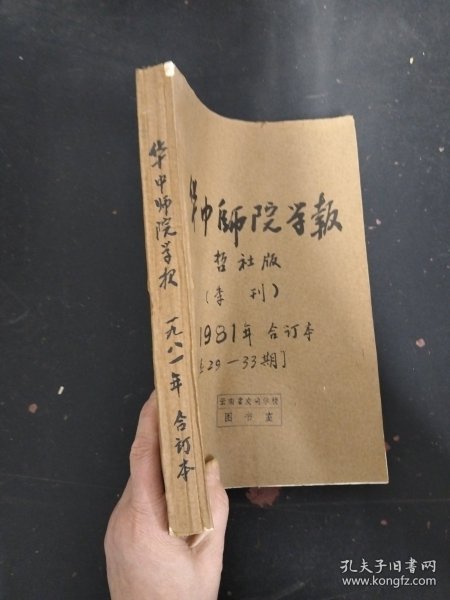 华中师院学报
一九八一年 合订本
华中师院学报
哲社版
(季刊)
1981年 合订本
29—33期]
图书室
孔夫子旧书网
www.kongfz.com